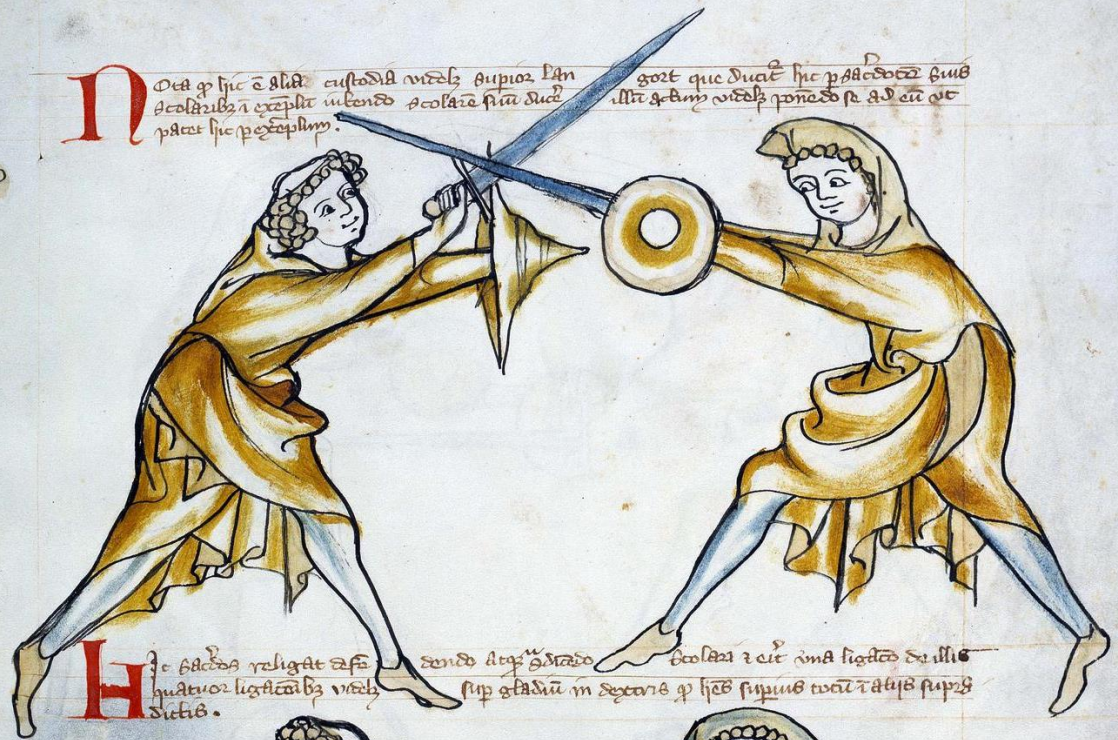 Nota ꝙ hic ē alia custodia videlꝫ supior lan gort que ducit᷑ hic ꝑ sac̓dotē suis
scolaribꝫ ī exēplū iubendo scolarē suū duc̓e illū actum videlꝫ ponēdo se ad eū vt
patet hic ꝑ exēplum.
Hic sac̓dos religat defē dendo atqꝫ scolari ⁊ erit vna ligac̄o de illis
quatuor ligac̄oibꝫ videlꝫ sup gladiū in dextris ꝙ supius totū ī aliis
dictis.